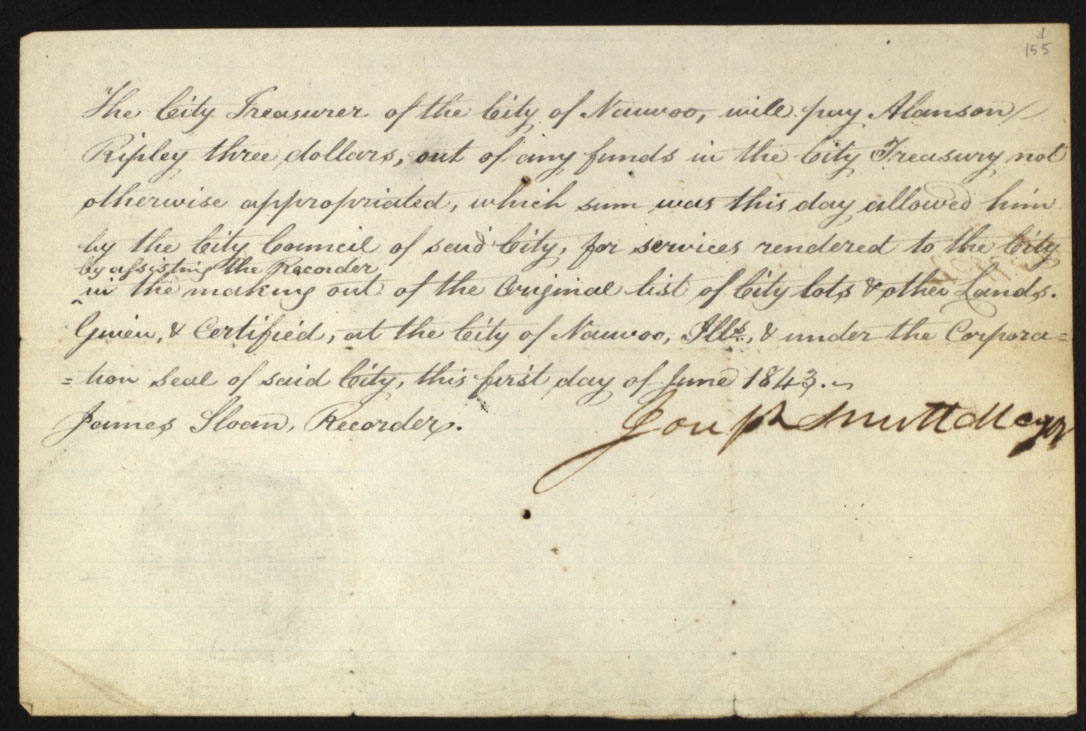 d
155
The City Treasurer of the City of Nauvoo, will pay Alanson
Ripley three dollars, out of any funds in the City Treasury not
otherwise appropriated, which sum was this day allowed him
by the City Council of said City, for services rendered to the City
by assisting the Recorder
^ in the making out of the Original list of City lots & other Lands.
Given, & Certified, at the City of Nauvoo, Ills., & under the Corpora=
=tion seal of said City, this first day of June 1843.
James Sloan, Recorder.
Joseph Smith Mayor